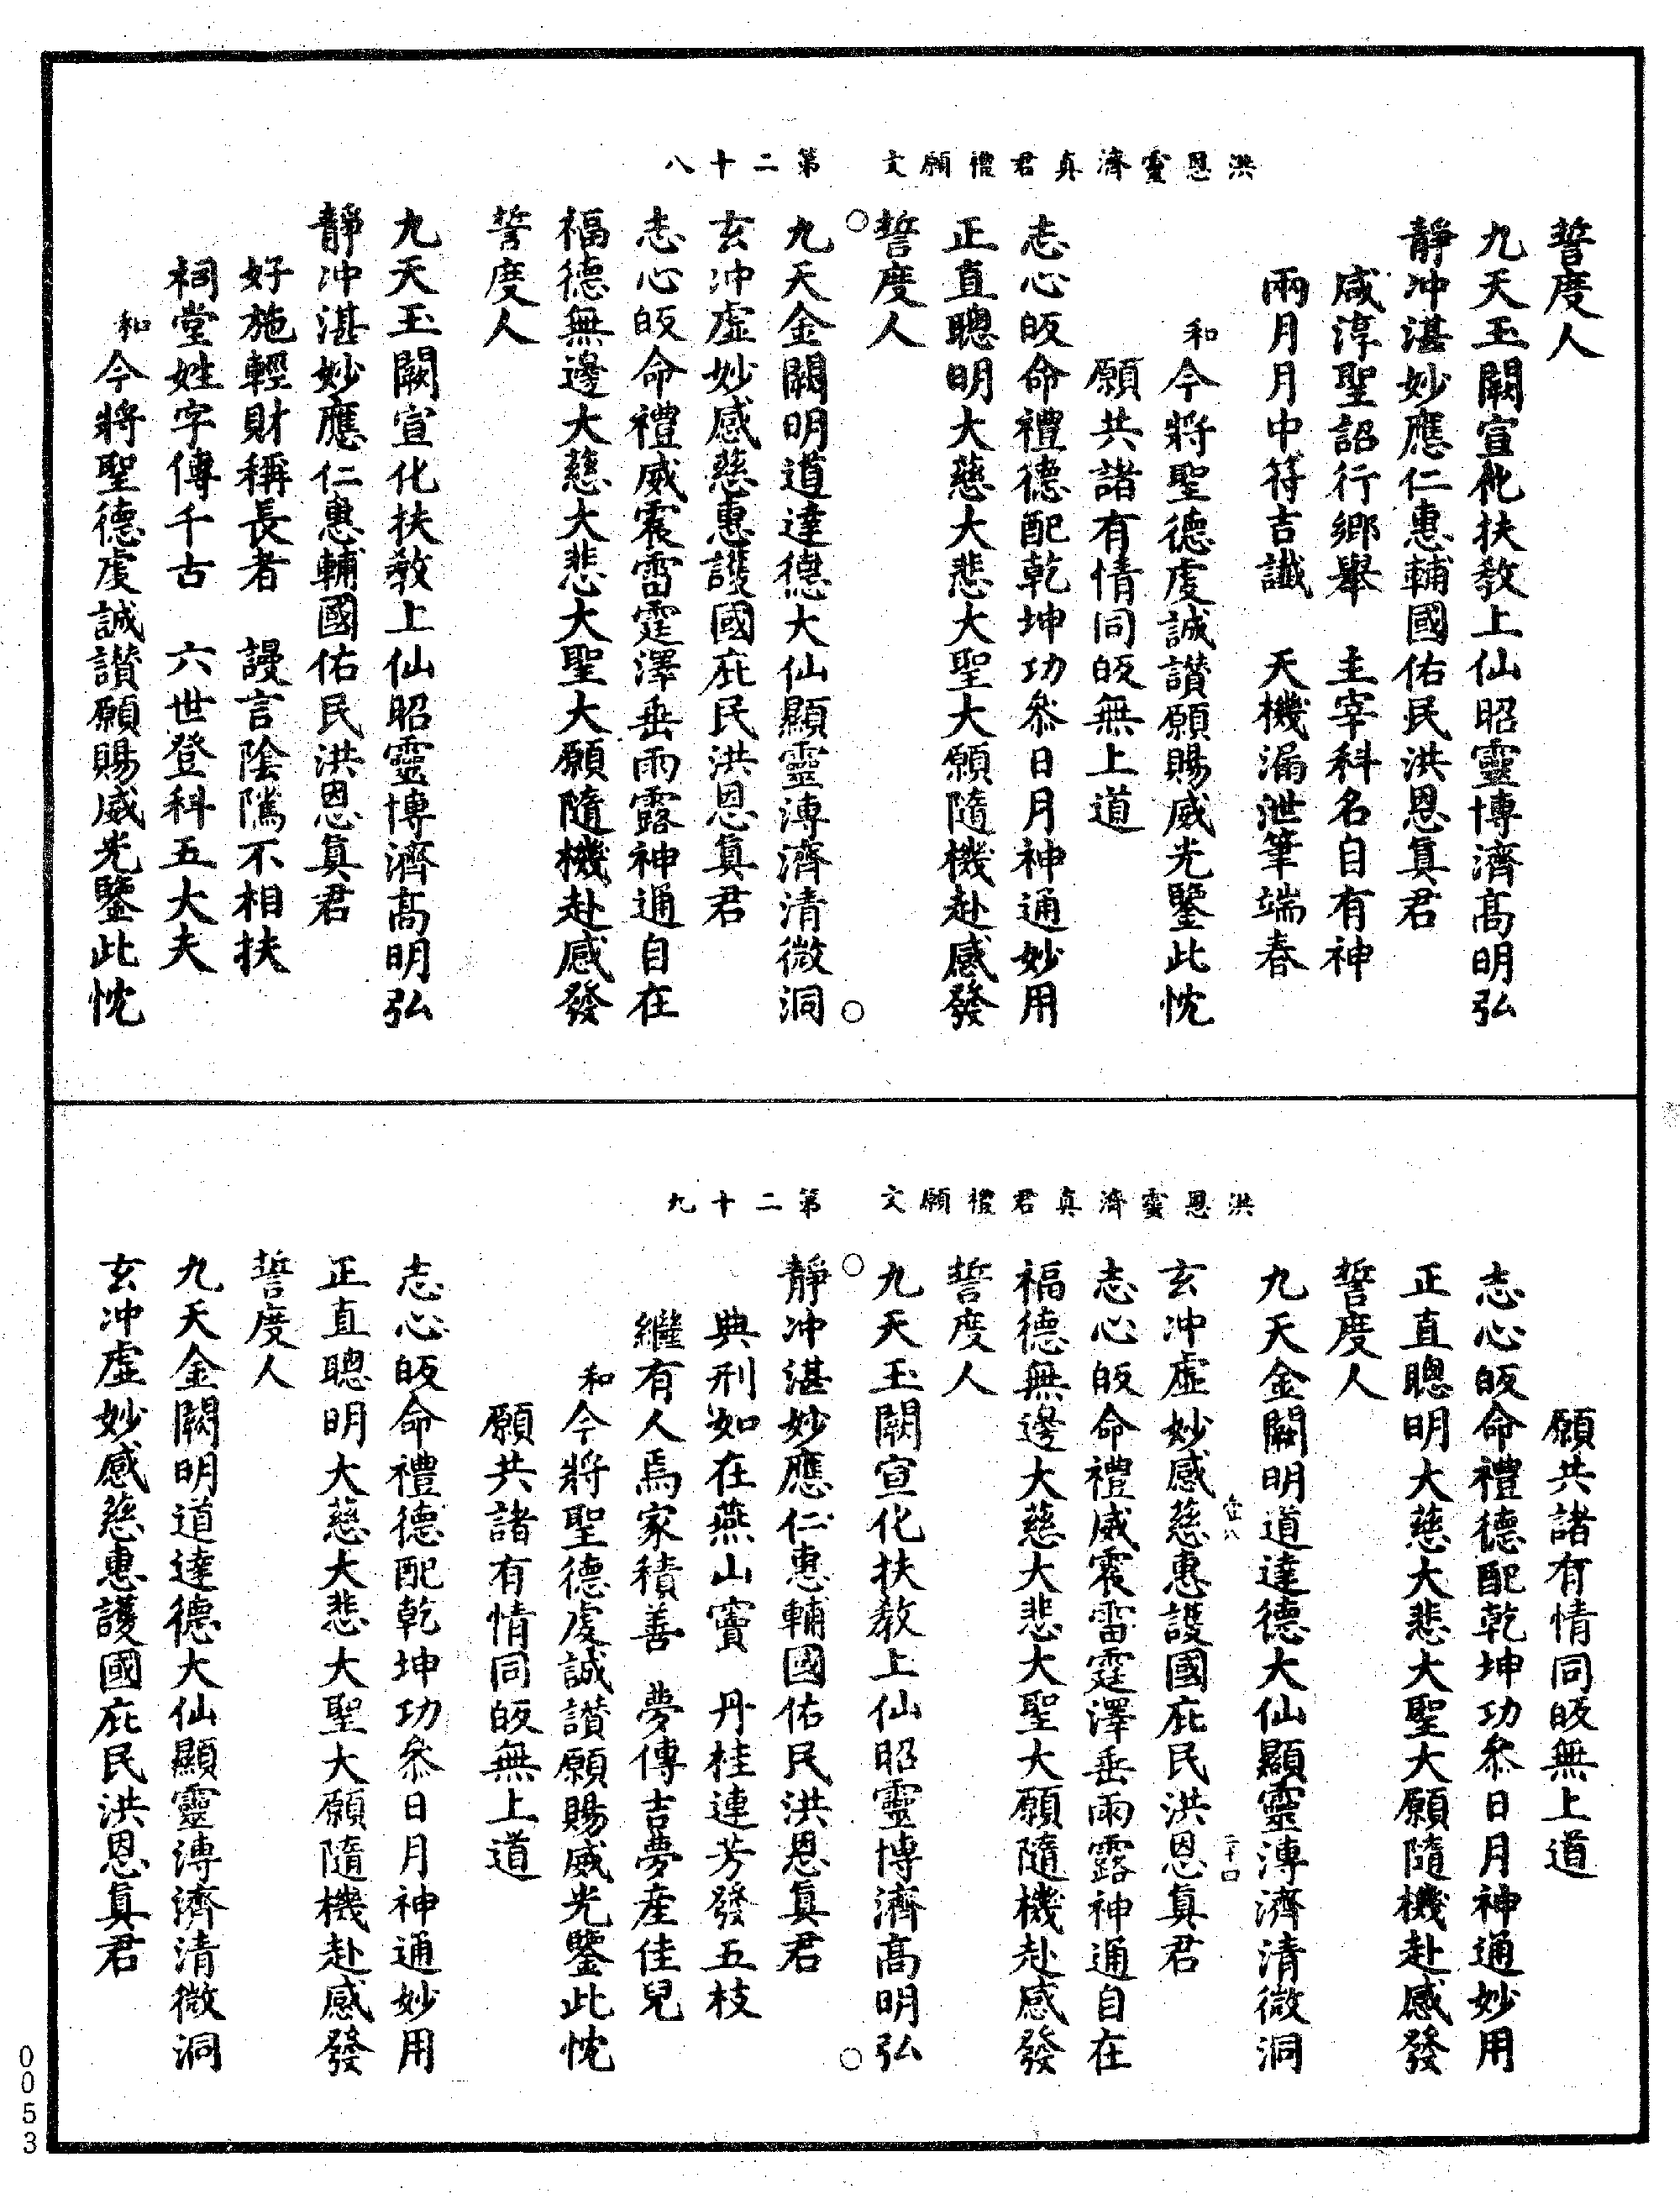 洪恩靈濟真君禮願文　第二十八
誓度人
九天玉闕宣化扶教上仙昭靈博濟高明弘
靜冲湛妙應仁惠輔國佑民洪恩真君
咸淳聖詔行鄉舉　主宰科名自有神
兩月月中符吉讖　天機漏泄筆端春
和今將聖德虔誠讃願賜威光鑒此忱
願共諸有情同皈無上道
志心皈命禮德配乾坤功叅日月神通妙用
正直聰明大慈大悲大聖大願隨機赴感發
誓度人
九天金闕明道達德大仙顯靈溥濟清微洞
玄冲虛妙感慈惠護國庇民洪恩真君
志心皈命禮威震雷霆澤垂雨露神通自在
福德無邊大慈大悲大聖大願隨機赴感發
誓度人
九天玉闕宣化扶教上仙昭靈博濟高明弘
靜冲湛妙應仁惠輔國佑民洪恩真君
好施輕財稱長者　謾言陰隲不相扶
祠堂姓字傳千古　六世登科五大夫
和今將聖德虔誠讃願賜威光鑒此忱
洪恩靈濟真君禮願文　第二十九
願共諸有情同皈無上道
志心皈命禮德配乾坤功叅日月神通妙用
正直聰明大慈大悲大聖大願隨機赴感發
誓度人
九天金闕明道達德大仙顯靈溥濟清微洞
壹八　二十四
玄冲虛妙感慈惠護國庇民洪恩真君
志心皈命禮威震雷霆澤垂雨露神通自在
福德無邊大慈大悲大聖大願隨機赴感發
誓度人
九天玉闕宣化扶教上仙昭靈博濟高明弘
靜冲湛妙應仁惠輔國佑民洪恩真君
典刑如在燕山竇　丹桂連芳發五枝
繼有人焉家積善　夢傳吉夢產佳兒
和今將聖德虔誠讃願賜威光鑒此忱
願共諸有情同皈無上道
志心皈命禮德配乾坤功叅日月神通妙用
正直聰明大慈大悲大聖大願隨機赴感發
誓度人
九天金闕明道達德大仙顯靈溥濟清微洞
玄冲虛妙感慈惠護國庇民洪恩真君
0053